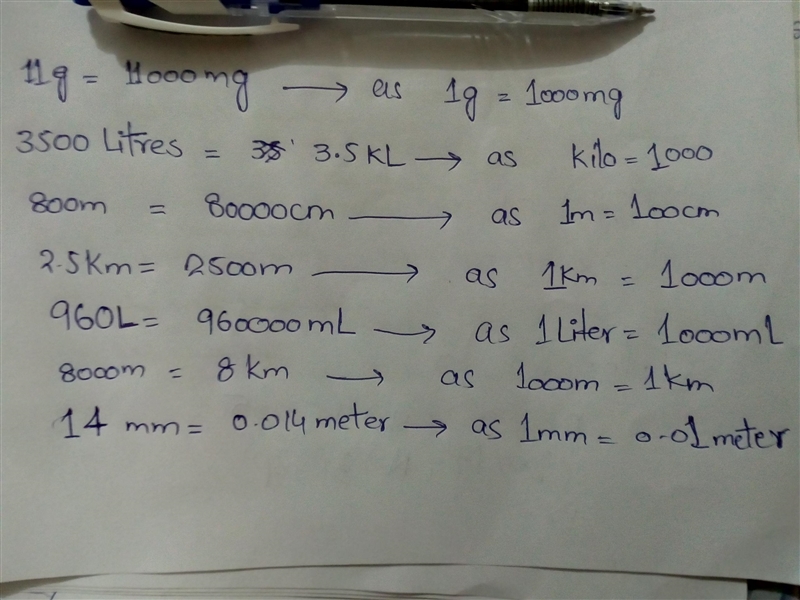 11g = 11000mg → as 1g = 1000mg
3500 Litres = 3.5KL → as kilo = 1000
800m = 80000cm → as 1m = 100cm
2.5Km = 2500m → as 1Km = 1000m
960L = 960000mL → as 1Liter = 1000mL
8000m = 8km → as 1000m = 1km
14 mm = 0.014 meter → as 1mm = 0.01 meter